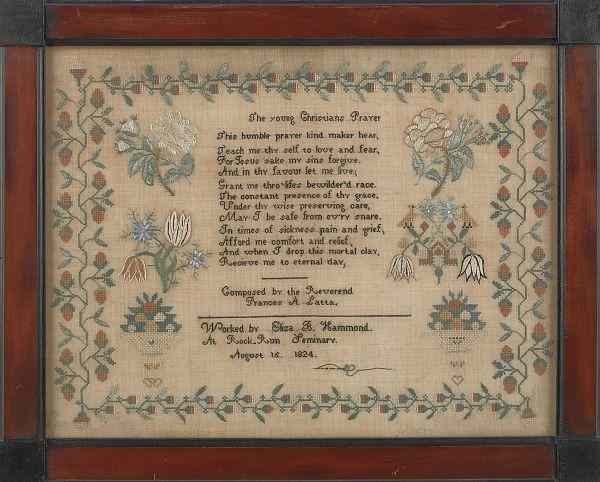 The young Christians Prayer
This humble prayer kind maker hear,
Teach me thy self to love and fear,
For Jesus sake my sins forgive.
And in thy favour let me live;
Grant me thro lifes bewilder'd race.
The constant presence of thy grace,
Under thy wise preserving care,
May I be safe from ev'ry snare.
In times of sickness pain and grief,
Afford me comfort and relief,
And when I drop this mortal clay,
Recieve me to eternal day,
Composed by the Reverend
Frances A Latta.
Worked by Eliza B. Hammond.
At Rock Run Seminary.
August 15. 1824.